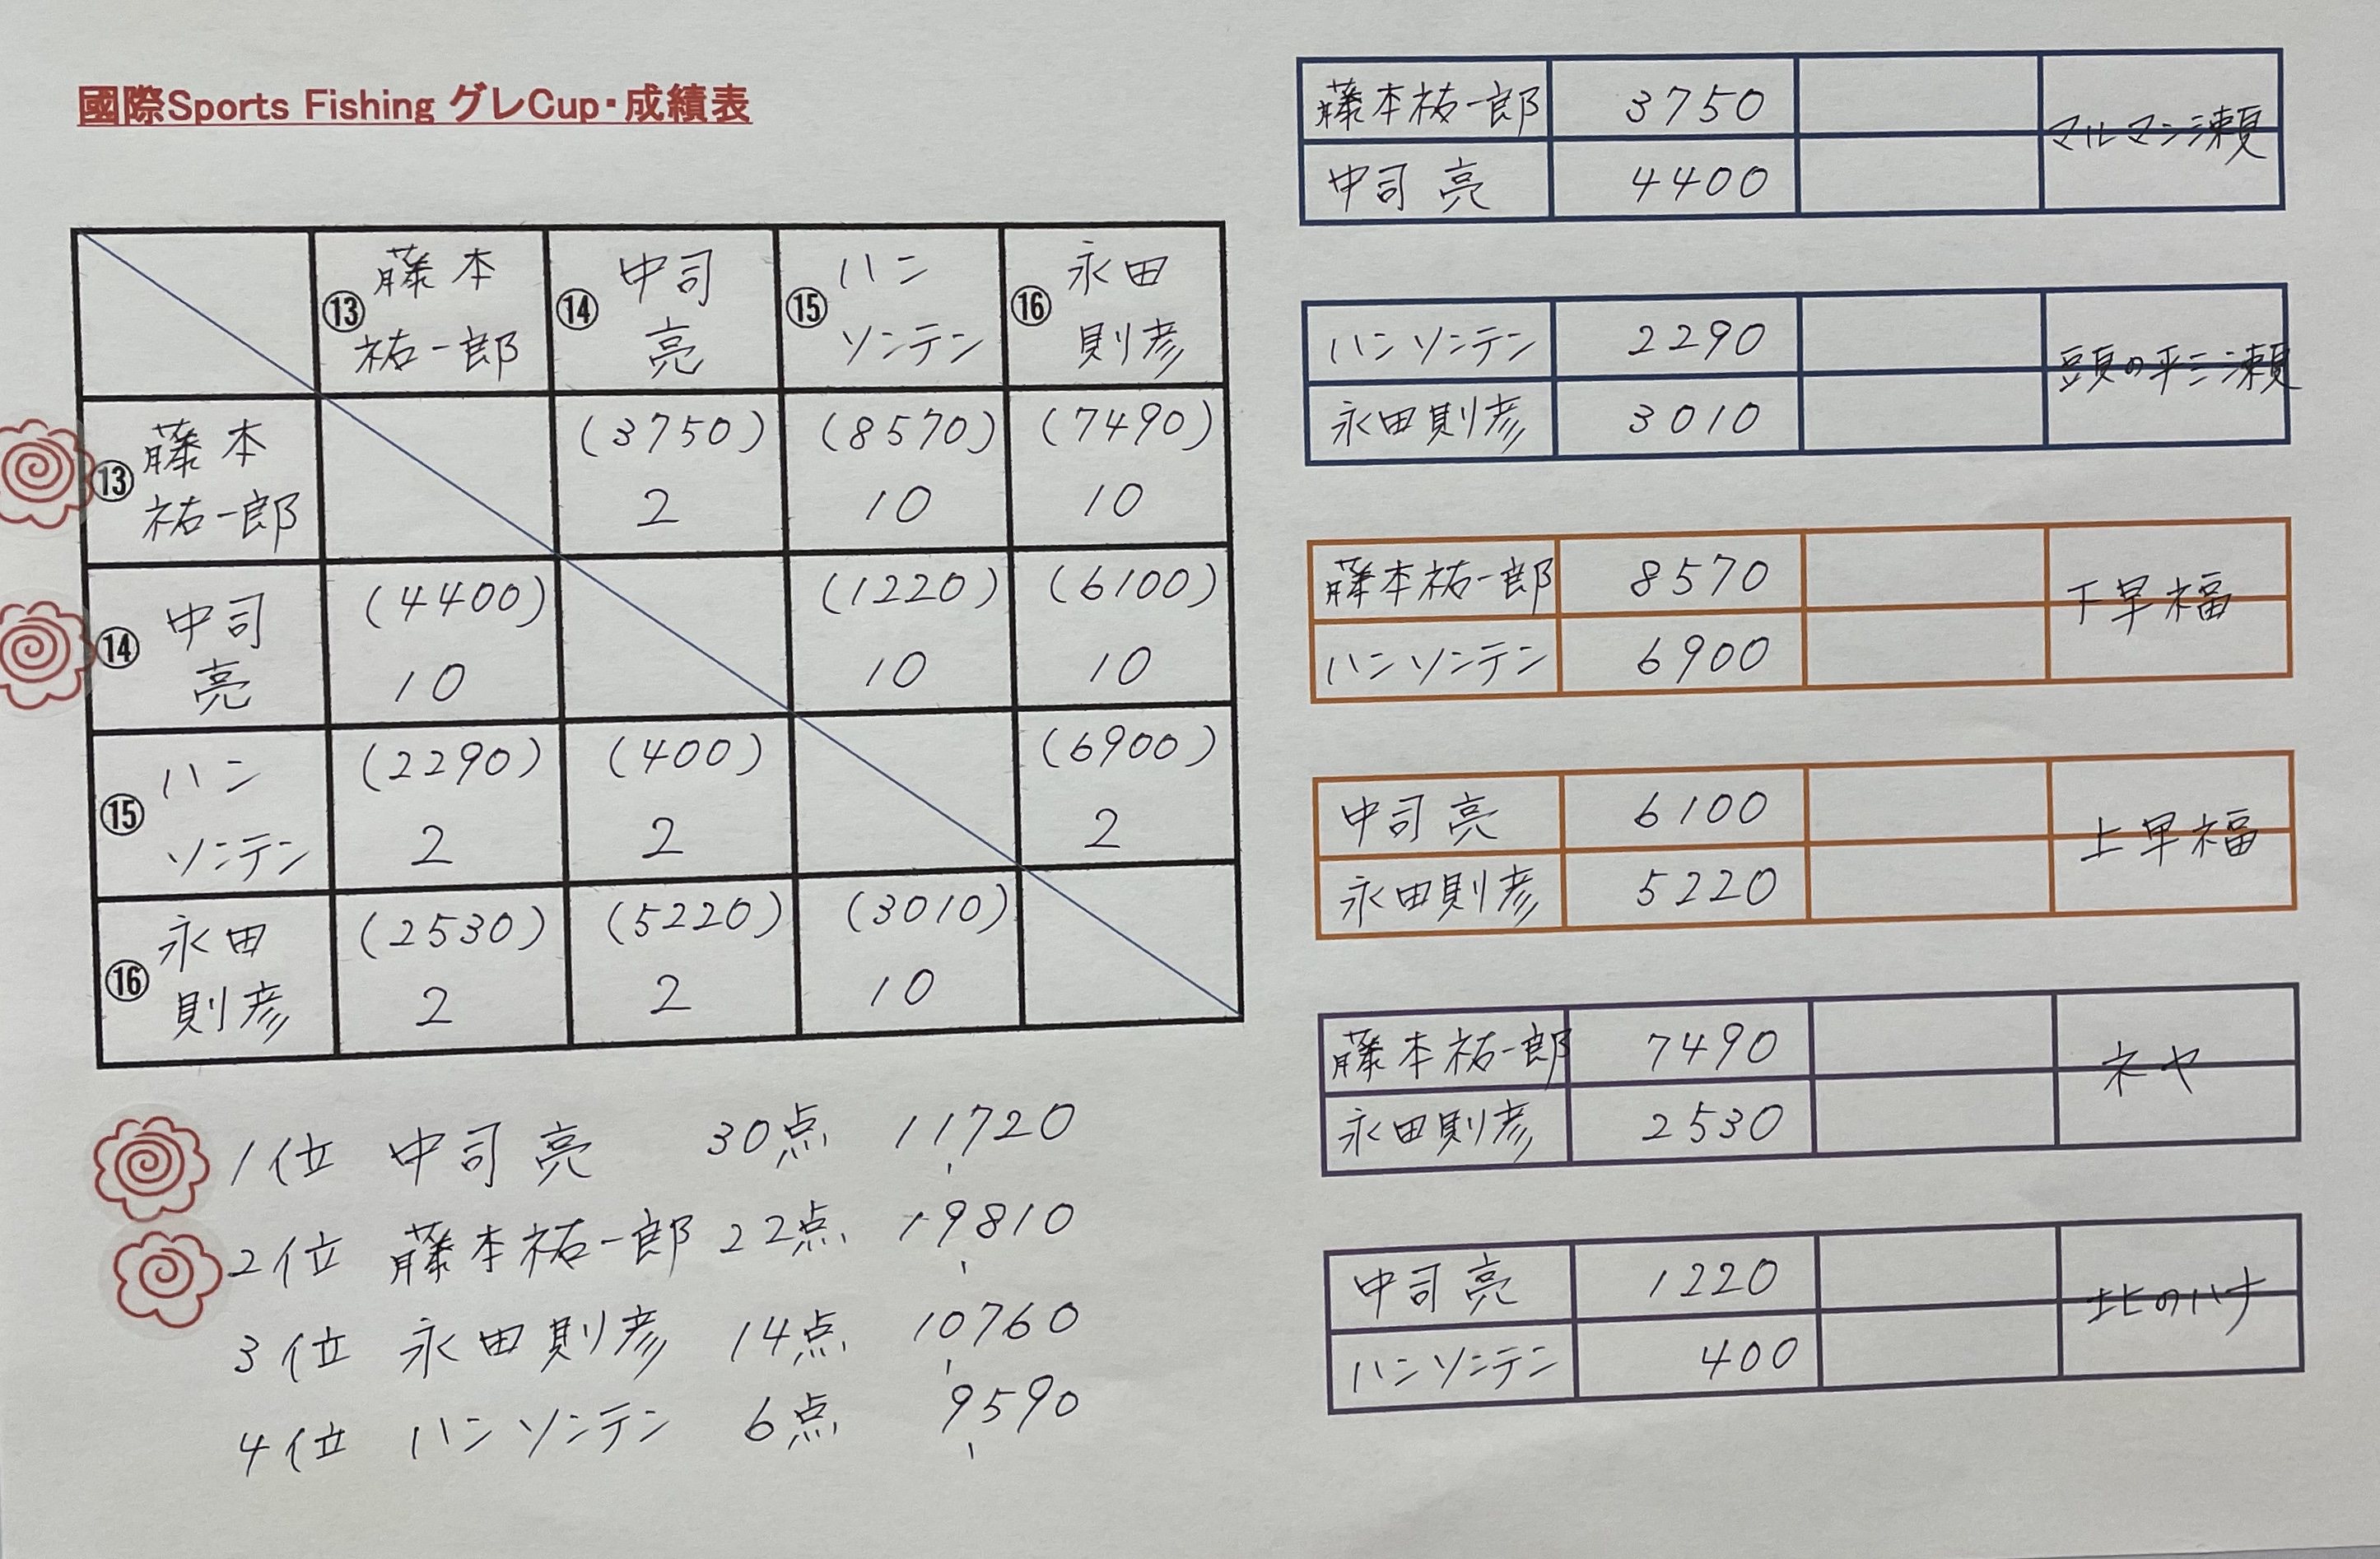 國際Sports Fishing グレCup・成績表
⑬藤本祐一郎 ⑭中司亮 ⑮ハンソンテン ⑯永田則彦
⑬藤本祐一郎 (3750) 2 (8570) 10 (7490) 10
⑭中司亮 (4400) 10 (1220) 10 (6100) 10
⑮ハンソンテン (2290) 2 (400) 2 (6900) 2
⑯永田則彦 (2530) 2 (5220) 2 (3010) 10
1位 中司亮 30点 11,720
2位 藤本祐一郎 22点 19,810
3位 永田則彦 14点 10,760
4位 ハンソンテン 6点 9,590
藤本祐一郎 3750 マルマン瀬
中司亮 4400
ハンソンテン 2290 頭の平三瀬
永田則彦 3010
藤本祐一郎 8570 下早福
ハンソンテン 6900
中司亮 6100 上早福
永田則彦 5220
藤本祐一郎 7490 ネヤ
永田則彦 2530
中司亮 1220 北のハナ
ハンソンテン 400